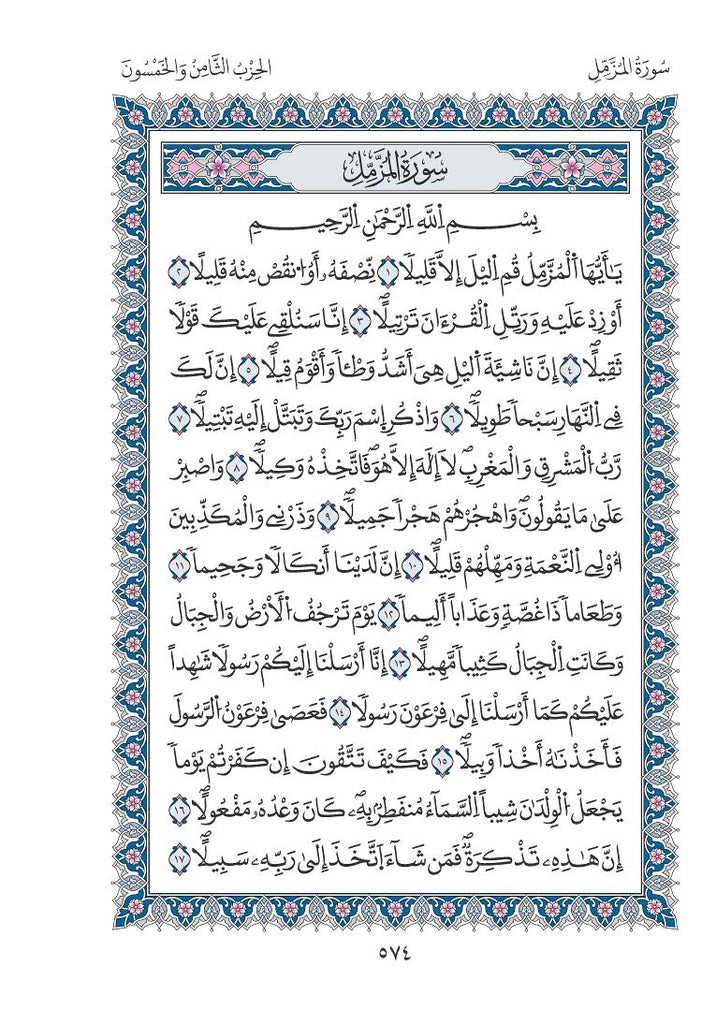 سُورَةُ المُزَّمِّلِ
الحِزْبُ الثَّامِنُ وَالخَمْسُونَ
سُورَةُ المُزَّمِّلِ
بِسْمِ اِللَّهِ اِلرَّحْمَٰنِ اِلرَّحِيمِ
يَٰٓأَيُّهَا اَ۬لْمُزَّمِّلُ قُمِ اِ۬ليْلَ إِلَّا قَلِيلاٗ ١ نِّصْفَهُۥٓ أَوُ اُ۟نقُصْ مِنْهُ قَلِيلاٗ ٢
أَوْ زِدْ عَلَيْهِ وَرَتِّلِ اِ۬لْقُرْءَانَ تَرْتِيلاًۖ ٣ إِنَّا سَنُلْقِے عَلَيْكَ قَوْلاٗ
ثَقِيلاًۖ ٤ إِنَّ نَاشِئَةَ اَ۬ليْلِ هِيَ أَشَدُّ وَطْـٔاٗ وَأَقْوَمُ قِيلاًۖ ٥ إِنَّ لَكَ
فِے اِ۬لنَّهَارِ سَبْحاٗ طَوِيلاٗۖ ٦ وَاذْكُرِ اِ۪سْمَ رَبِّكَ وَتَبَتَّلِ اِلَيْهِ تَبْتِيلاٗۖ ٧
رَّبُّ اُ۬لْمَشْرِقِ وَالْمَغْرِبِۖ لَآ إِلَٰهَ إِلَّا هُوَۖ فَاتَّخِذْهُ وَكِيلاٗۖ ٨ وَاصْبِرْ
عَلَىٰ مَا يَقُولُونَۖ وَاهْجُرْهُمْ هَجْراٗ جَمِيلاٗۖ ٩ وَذَرْنِے وَالْمُكَذِّبِينَ
أُوْلِے اِ۬لنَّعْمَةِ وَمَهِّلْهُمْ قَلِيلاًۖ ١٠ إِنَّ لَدَيْنَآ أَنكَالاٗ وَجَحِيماٗ ١١
وَطَعَاماٗ ذَا غُصَّةٖ وَعَذَاباً أَلِيماٗ ١٢ يَوْمَ تَرْجُفُ اُ۬لْأَرْضُ وَالْجِبَالُ
وَكَانَتِ اِ۬لْجِبَالُ كَثِيباٗ مَّهِيلاًۖ ١٣ إِنَّآ أَرْسَلْنَآ إِلَيْكُمْ رَسُولاٗ شَٰهِداً
عَلَيْكُمْ كَمَآ أَرْسَلْنَآ إِلَىٰ فِرْعَوْنَ رَسُولاٗ ١٤ فَعَصَىٰ فِرْعَوْنُ اُ۬لرَّسُولَ
فَأَخَذْنَٰهُ أَخْذاٗ وَبِيلاٗۖ ١٥ فَكَيْفَ تَتَّقُونَ إِن كَفَرْتُمْ يَوْماٗ
يَجْعَلُ اُ۬لْوِلْدَٰنَ شِيباً اِ۬لسَّمَآءُ مُنفَطِرُۢ بِهِۦۖ كَانَ وَعْدُهُۥ مَفْعُولاًۖ ١٦
إِنَّ هَٰذِهِۦ تَذْكِرَةٞۖ فَمَن شَآءَ اَ۪تَّخَذَ إِلَىٰ رَبِّهِۦ سَبِيلاًۖ ١٧
٥٧٤